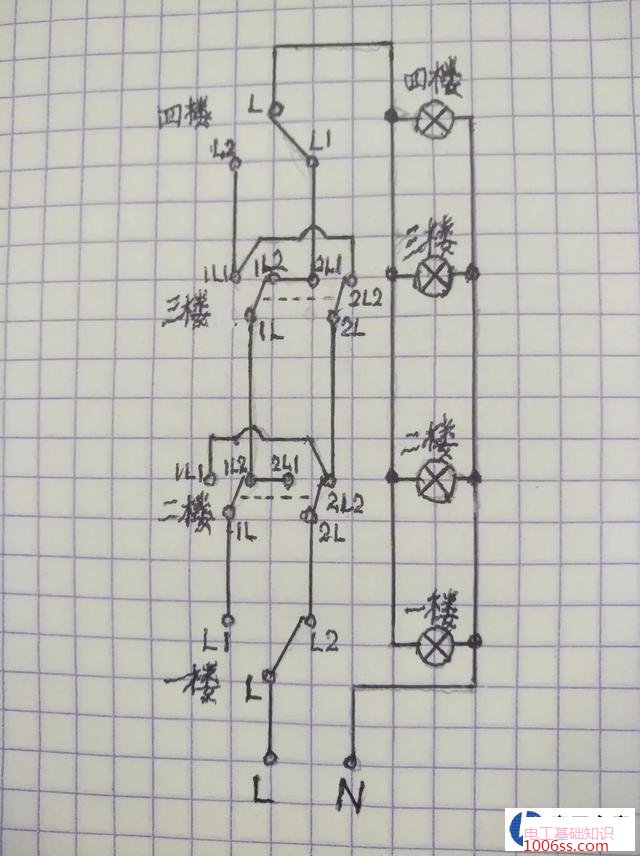 四楼
L
四楼
L2
L1
三楼
1L1
1L2
2L1
2L2
三楼
1L
2L
二楼
1L1
1L2
2L1
2L2
二楼
1L
2L
一楼
L1
L2
一楼
L
L
N
电工基础知识
1006ss.com